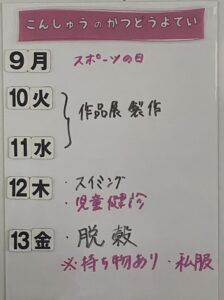 こんしゅうのかつどうよてい
9月 スポーツの日
10火
作品展 製作
11水
12木 ・スイミング
・児童健診
13金 ・脱穀
※持ち物あり ・私服